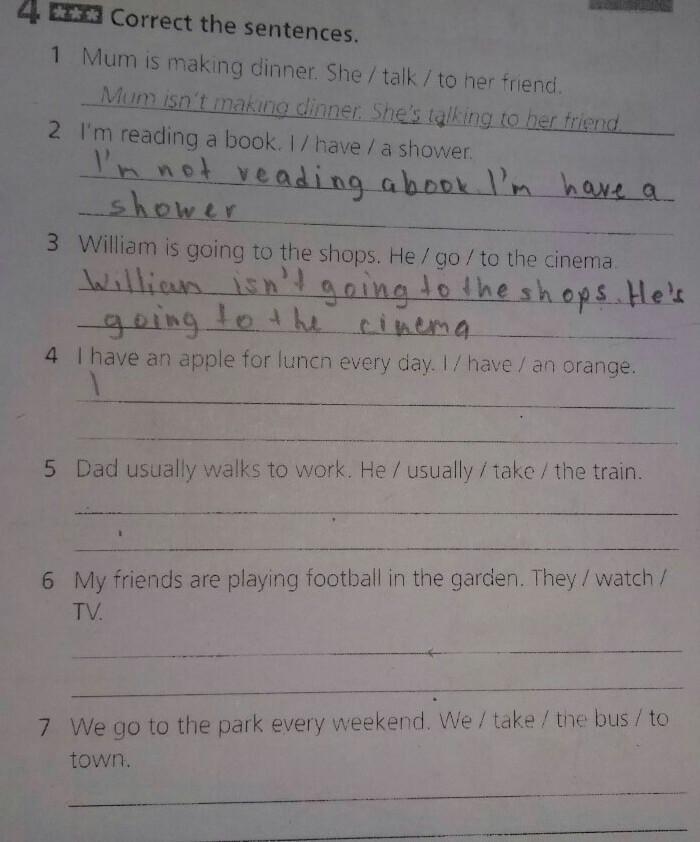 4 *** Correct the sentences.
1 Mum is making dinner. She / talk / to her friend.
Mum isn't making dinner. She's talking to her friend.
2 I'm reading a book. I / have / a shower.
I'm not reading a book. I'm have a
shower
3 William is going to the shops. He / go / to the cinema.
Willian isn't going to the shops. He's
going to the cinema
4 I have an apple for lunch every day. I / have / an orange.
I
5 Dad usually walks to work. He / usually / take / the train.
6 My friends are playing football in the garden. They / watch /
TV.
7 We go to the park every weekend. We / take / the bus / to
town.